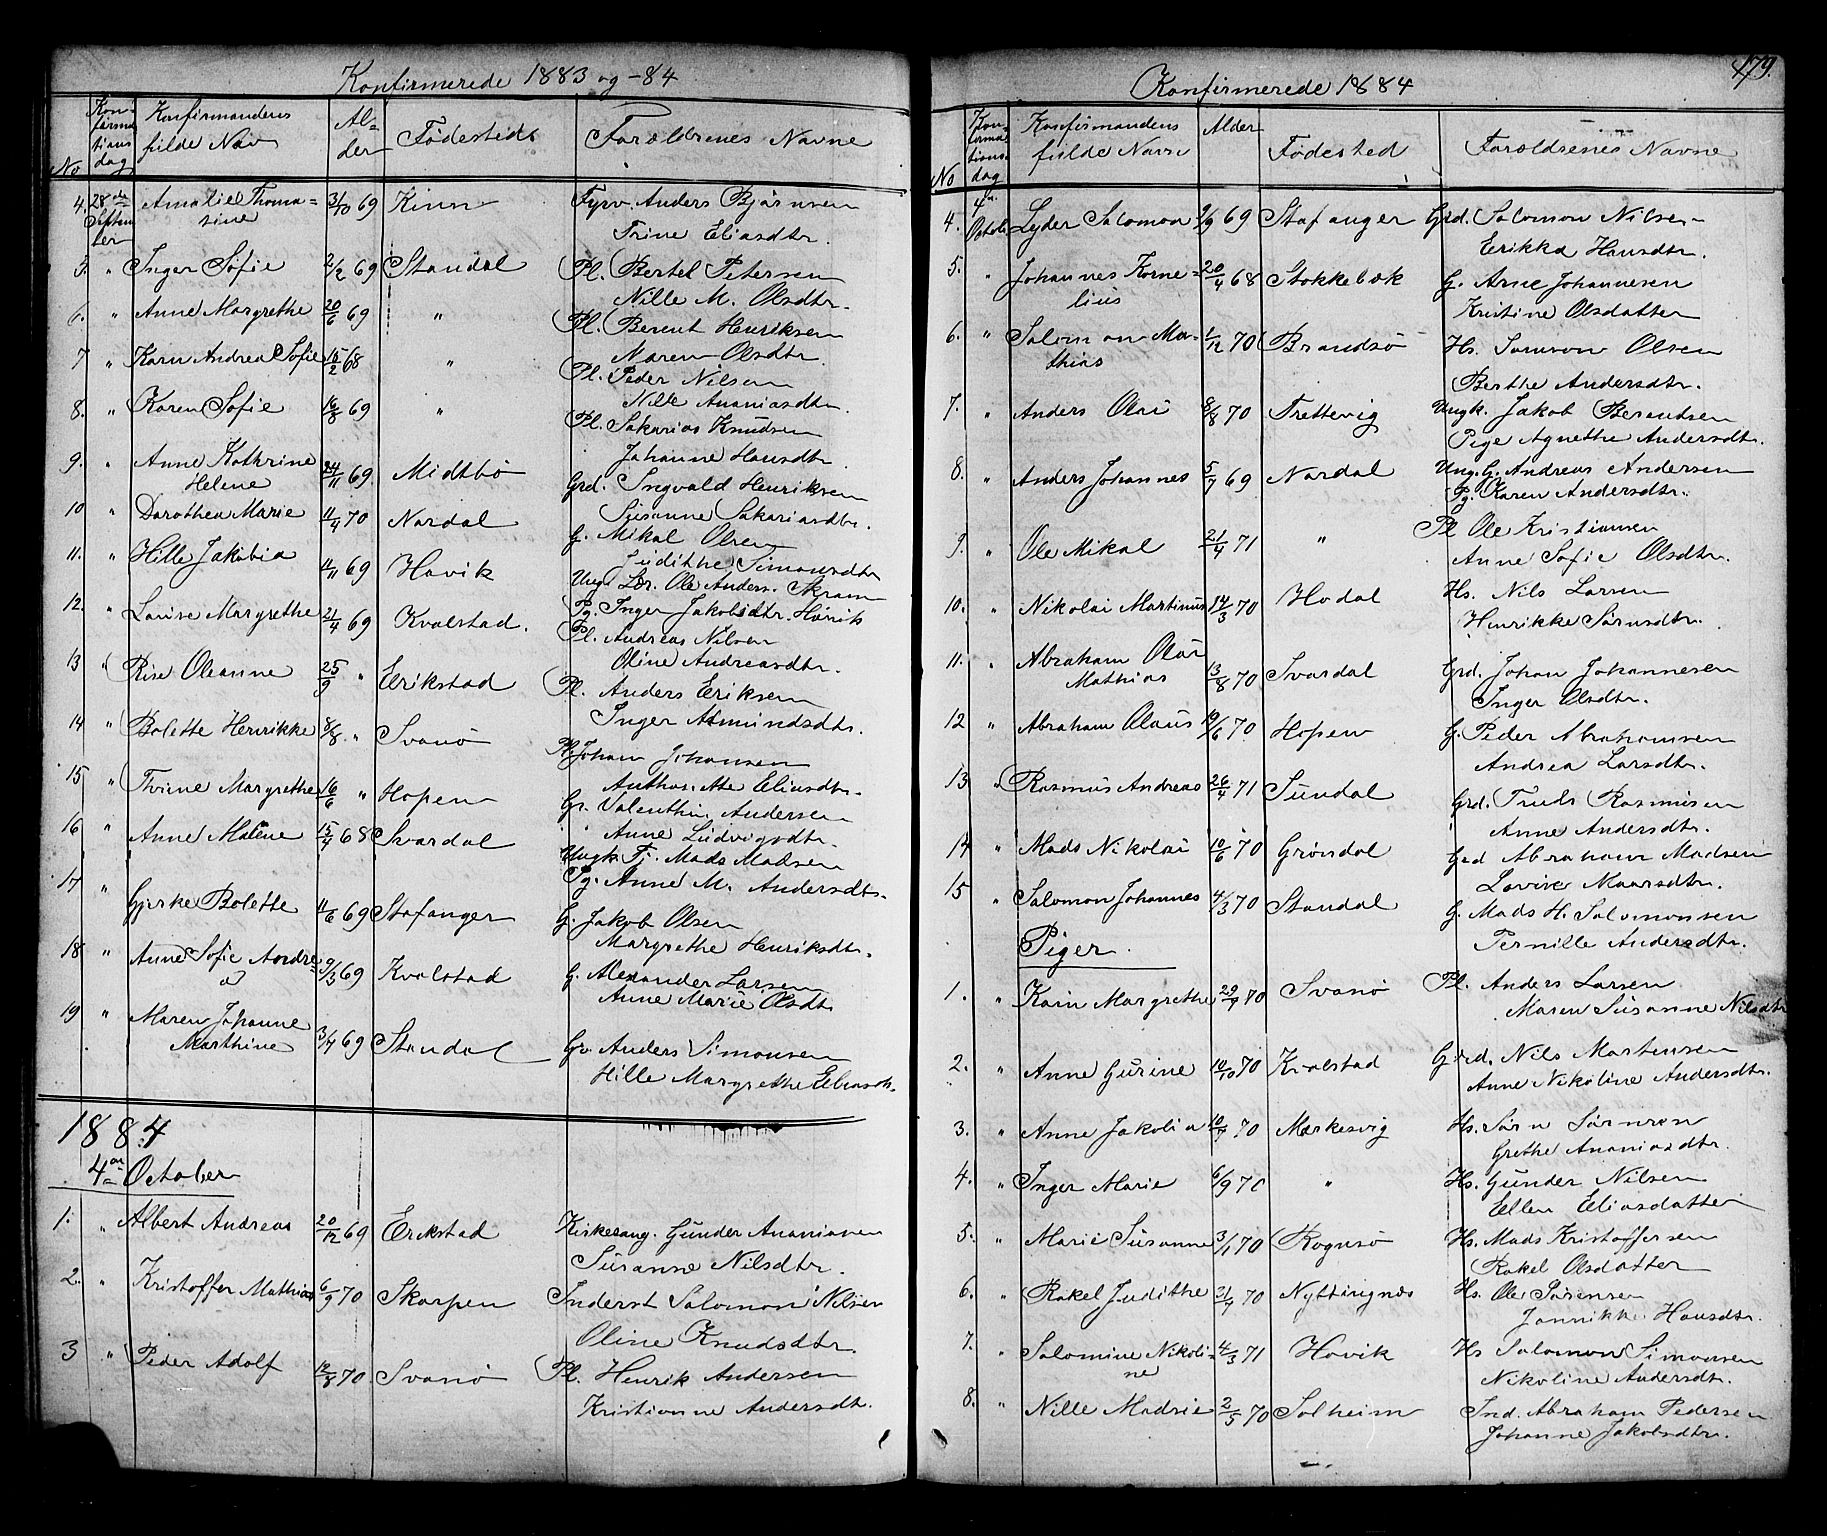 Konfirmerede 1883 og -84
No
Konfirmations dag
Konfirmandens fulde Navn
Alder
Fødested
Forældrenes Navne
4. 28de Septemb­er Amalie Thoma= 3/10 69 Kinn Fyrv. Anders Bjørnsen
sine Trine Eliasdtr.
5. " Inger Sofie 2/2 69 Standal Pl. Bertel Petersen
Nille M. Olsdtr.
6. " Anne Margrethe 20/6 69 " Pl. Berent Henriksen
Maren Olsdtr.
7 " Karn Andrea Sofie 15/2 68 " Pl. Peder Nilsen
Nille Ananiasdtr.
8. " Karen Sofie 16/8 69 " Pl. Sakarias Knudsen
Johanne Hansdtr.
9. " Anne Kathrine 24/11 69 Midtbø Grd. Ingvald Henriksen
Helene Susanne Sakariasdtr.
10 " Dorothea Marie 11/4 70 Nordal G. Mikal Olsen
Judithe Simonsdtr
11. " Hille Jakobia 4/11 69 Hovik Ungk. Lør. Ole Anders. Skram
Pg. Inger Jakobsdtr. Hovik
12. " Lovise Margrethe 21/4 69 Kvalstad. Pl. Andreas Nilsen
Oline Andreasdtr.
13 " Rise Oleanne 25/9 " Erikstad Pl. Anders Eriksen
Inger Asmundsdtr.
14 " Bolette Henrikke 8/8 " Svanø Pl. Johan Johansen
Anthonette Eliasdtr.
15 " Thrine Margrethe 16/6 " Hopen Gr. Valenthin Andersen
Anne Ludvigsdtr.
16 " Anne Malene 15/4 68 Svardal Ungk. Tj. Mads Madsen
Pg. Anne M. Andersdtr.
17 " Gjerke Bolette 11/6 69 Stafanger G. Jakob Olsen
Margrethe Henriksdtr.
18 " Anne Sofie Andre= 9/3 69 Kvalstad G. Alexander Larsen
a Anne Marie Olsdt
19 " Maren Johanne 3/7 69 Standal Gr. Anders Simonsen
Marthine Hille Margrethe Eliasdt.
1884
4de October
1. " Albert Andreas 20/12 69 Erikstad Kirkesang. Gunder Ananiasen
Susanne Nilsdtr.
2. " Kristoffer Mathias 6/9 70 Skorpen Inderst Salomon Nilsen
Oline Knudsdtr.
3 " Peder Adolf 12/8 70 Svanø Pl. Henrik Andersen
Kristianne Andersdt.
179.
Konfirmerede 1884
No
Konfirmations dag
Konfirmandens fulde Navn
Alder
Fødested
Forældrenes Navne
4. 4de Octob Lyder Salomon 9/9 69 Stafanger Grd. Salomon Nilsen
Erikka Hansdtr.
5. " Johannes Korne= 20/4 68 Stokkebæk G. Arne Johannesen
lius Kristine Olsdatter
6. " Salomon Ma= 1/12 70 Brandsø Hs. Samson Olsen
thias Berthe Andersdtr.
7. " Anders Olai 8/8 70 Trettevig Ungk. Jakob Berentsen
Pige Agnethe Andersdtr.
8. " Anders Johannes 5/7 69 Nordal Ung. G. Andreas Andersen
Pg. Karen Andersdtr.
9. " Ole Mikal 21/4 71 " Pl Ole Kristiansen
Anne Sofie Olsdtr.
10. " Nikolai Martinus 14/3 70 Hodal Hs. Nils Larsen
Henrikke Sørnsdtr.
11. " Abraham Olai 13/8 70 Svardal Grd. Johan Johannesen
Mathias Inger Olsdtr.
12 " Abraham Olaus 19/6 70 Hopen G. Peder Abrahamsen
Andrea Larsdtr.
13 " Rasmus Andreas 26/4 71 Sundal Grd. Truls Rasmusen
Anne Andersdtr.
14 " Mads Nikolai 10/6 70 Grøndal Grd Abraham Madsen
Lovise Maarsdtr.
15 " Salomon Johannes 4/3 70 Standal G. Mads H. Salomonsen
Pernille Andersdtr.
Piger.
1. " Karn Margrethe 29/7 70 Svanø Pl. Anders Larsen
Maren Susanne Nilsdtr
2. " Anne Gurine 10/10 70 Kvalstad Grd. Nils Martensen
Anne Nikoline Andersdtr.
3. " Anne Jakobia 10/7 70 Markesvig Hs. Sørn Sørnsen
Grethe Ananiasdtr.
4. " Inger Marie 6/9 70 " Hs. Gunder Nilsen
Ellen Eliasdatter
5. " Marie Susanne 3/1 70 Rognsø Hs. Mads Kristoffersen
Rakel Olsdatter
6. " Rakel Judithe 31/7 70 Nyttingnes Hs. Ole Sørensen
Jannikke Hansdtr.
7. " Salomine Nikoli= 4/3 71 Hovik Hs Salomon Simonsen
ne Nikoline Andersdtr.
8. " Nille Madsie 2/5 70 Solheim Ind. Abraham Pedersen
Johanne Jakobsdtr.